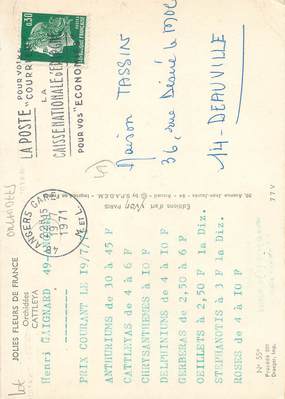 JOLIES FLEURS DE FRANCE
Orchidées
CATTLEYA
Henri GAIGNARD 49-ANGERS
PRIX COURANT LE 19/7/7
ANTHURIUMS de 30 à 45 F
CATTLEYAS de 4 à 6 F
CHRYSANTHEMES à 10 F
DELPHINIUMS de 4 à 10 F
GERBERAS de 2,50 à 6 F
OEILLETS à 2,50 F la Diz.
STEPHANOTIS à 3 F la Diz.
ROSES de 4 à 10 F
N° 55
Editions d'art Yvon PARIS
by S.P.A.D.E.M.
77V
ANGERS GARE
22H15
19-7
1971
M.ET L.
POUR VOTRE
LA POSTE "COURRIER"
LA
CAISSE NATIONALE D'EPARGNE
POUR VOS "ECONOMIES"
0,30
REPUBLIQUE FRANCAISE
Maison TASSIN
36, rue Désiré le Hoc
14-DEAUVILLE